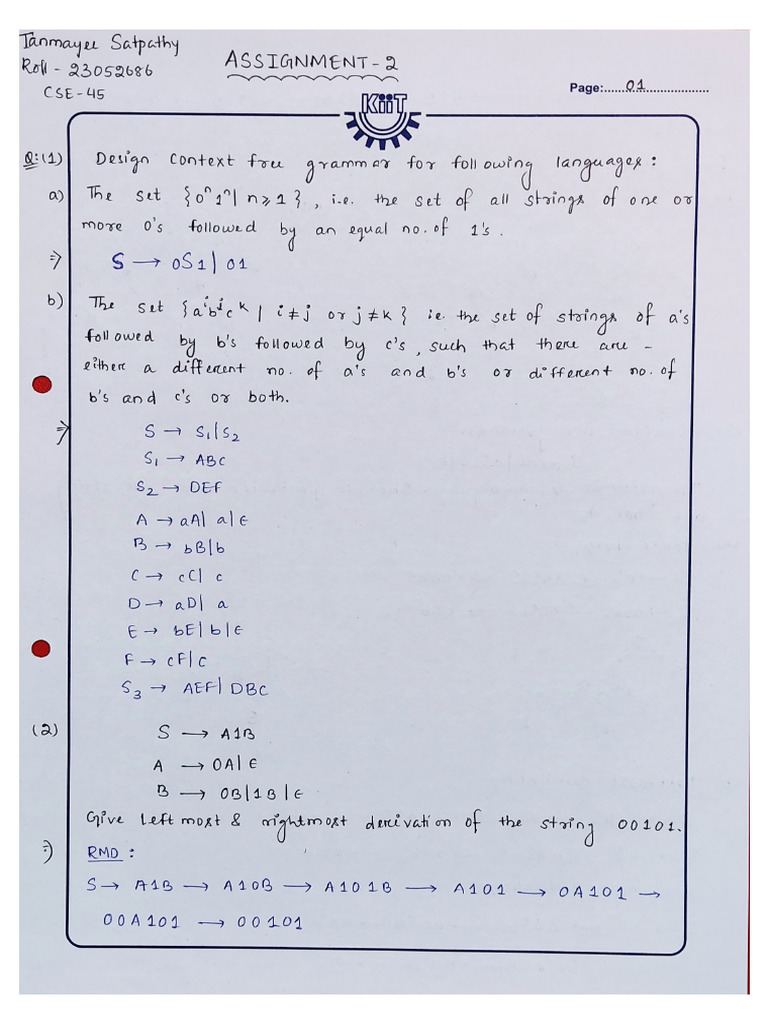 Tanmayee Satpathy
Roll - 23052686
CSE-45
ASSIGNMENT-2
Page:......01..................
KiiT
Q:(1) Design Context free grammar for following languages:
a) The set {0ⁿ1ⁿ | n⩾1}, i.e. the set of all strings of one or
more 0's followed by an equal no. of 1's.
⇒ S → 0S1 | 01
b) The set {aⁱbʲcᵏ | i≠j or j≠k} ie. the set of strings of a's
followed by b's followed by c's, such that there are -
either a different no. of a's and b's or different no. of
b's and c's or both.
⇒ S → S₁|S₂
S₁ → ABC
S₂ → DEF
A → aA| a|ϵ
B → bB|b
C → cC| c
D → aD| a
E → bE|b|ϵ
F → cF|c
S₃ → AEF| DBC
(2) S → A1B
A → 0A|ϵ
B → 0B|1B|ϵ
Give leftmost & rightmost derivation of the string 00101.
⇒ RMD :
S → A1B → A10B → A101B → A101 → 0A101 →
00A101 → 00101